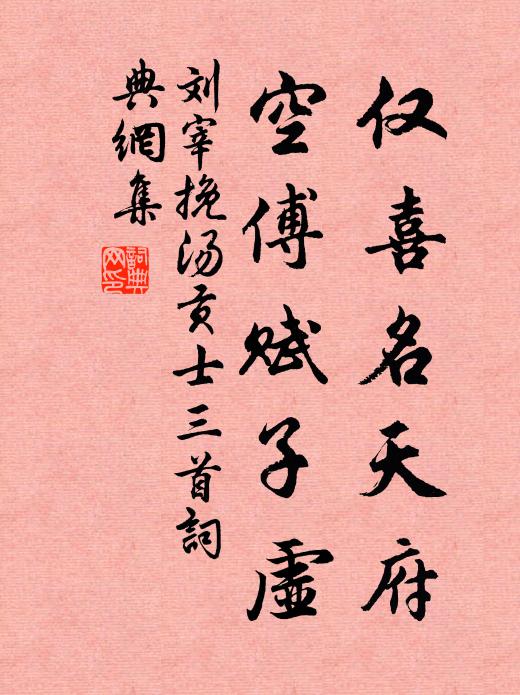 仅喜名天府
空傅赋子虚
刘宰挽汤贡士三首詞
典網集
詞典网印